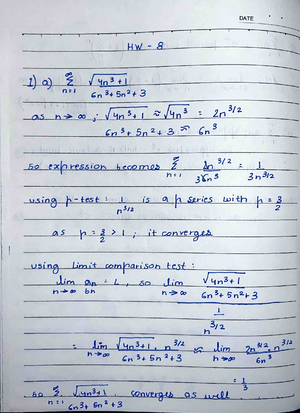 DATE
HW - 8
1) a) ∞ Σ n=1 √(4n³+1) / (6n³+5n²+3)
as n→∞ ; √(4n³+1) ≈ √(4n³) = 2n^(3/2)
6n³+5n²+3 ≈ 6n³
so expression becomes ∞ Σ n=1 2n^(3/2) / 6n³ = 1 / 3n^(3/2)
using p-test: 1/n^(3/2) is a p series with p = 3/2
as p = 3/2 > 1 ; it converges
using Limit comparison test :
lim n→∞ an/bn = L, so lim n→∞ (√(4n³+1) / (6n³+5n²+3)) / (1 / n^(3/2))
= lim n→∞ √(4n³+1) · n^(3/2) / (6n³+5n²+3) ≈ lim n→∞ 2n^(3/2) n^(3/2) / 6n³
= 1/3
so ∞ Σ n=1 √(4n³+1) / (6n³+5n²+3) converges as well